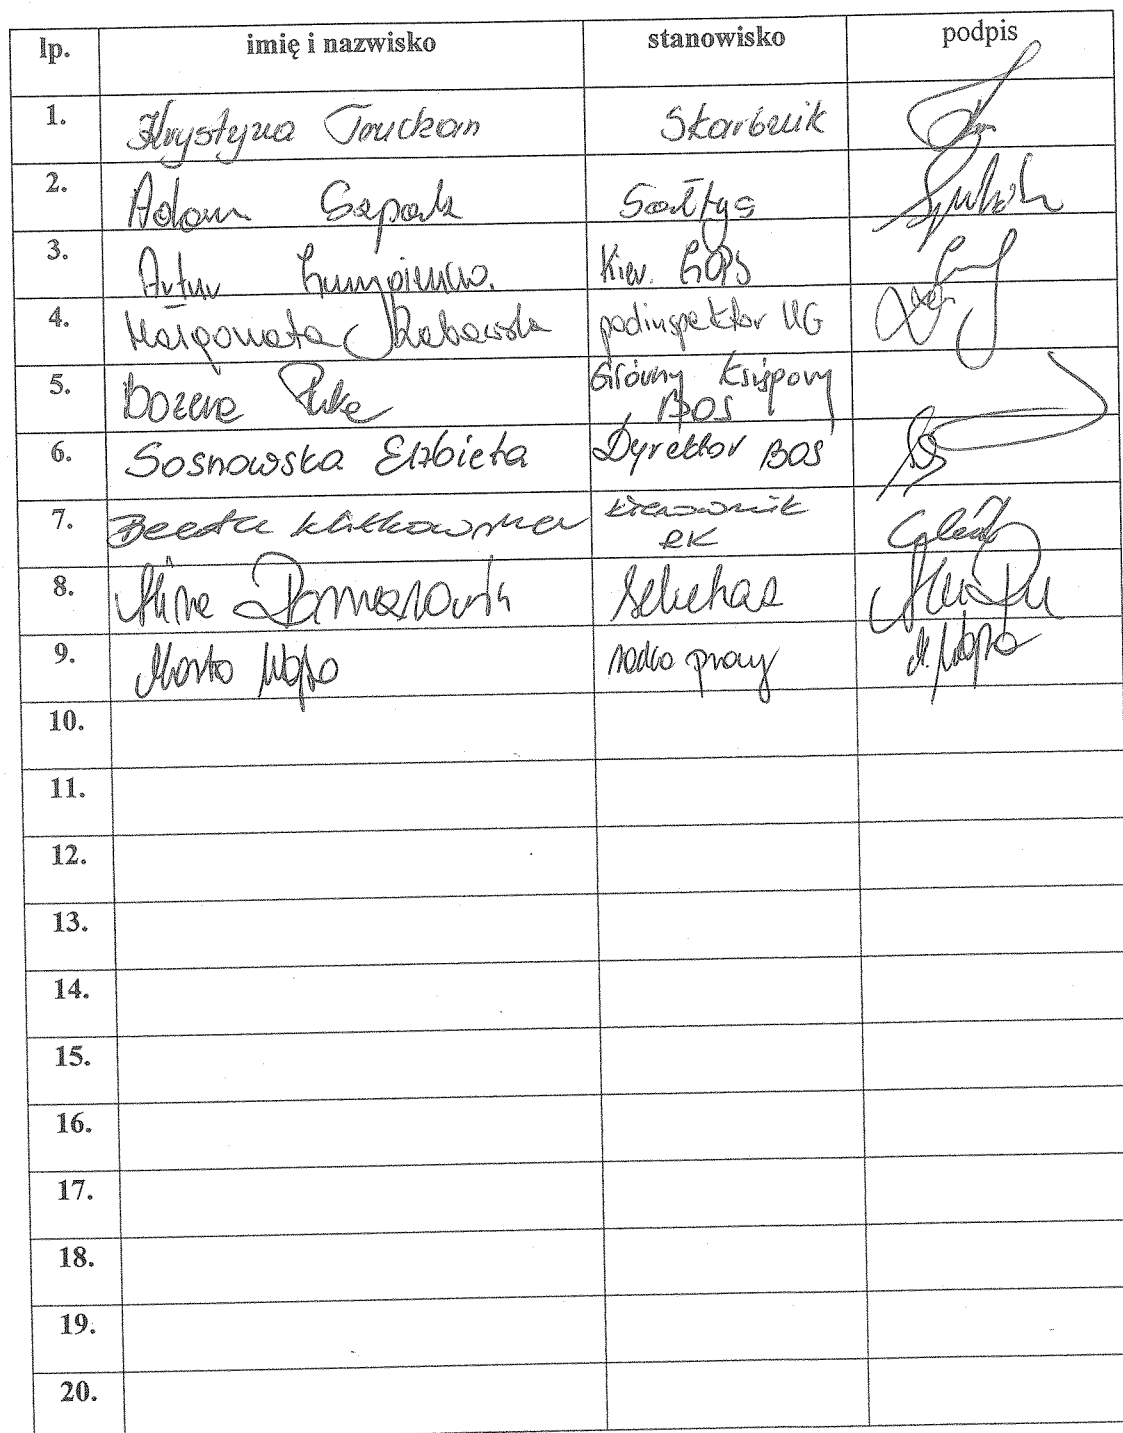 lp. imię i nazwisko stanowisko podpis
1. Krystyna Truchan Skarbnik
2. Adam Szpak Sołtys
3. Artur Kier. GOPS
4. Małgorzata podinspektor UG
5. Bożena Główny Księgowy
BOS
6. Sosnowska Elżbieta Dyrektor BOS
7. Beata Witkowska kierownik
RK
8. Alina Sekretarz
9. Marta Wojno radca prawny M. Wojno
10.
11.
12.
13.
14.
15.
16.
17.
18.
19.
20.